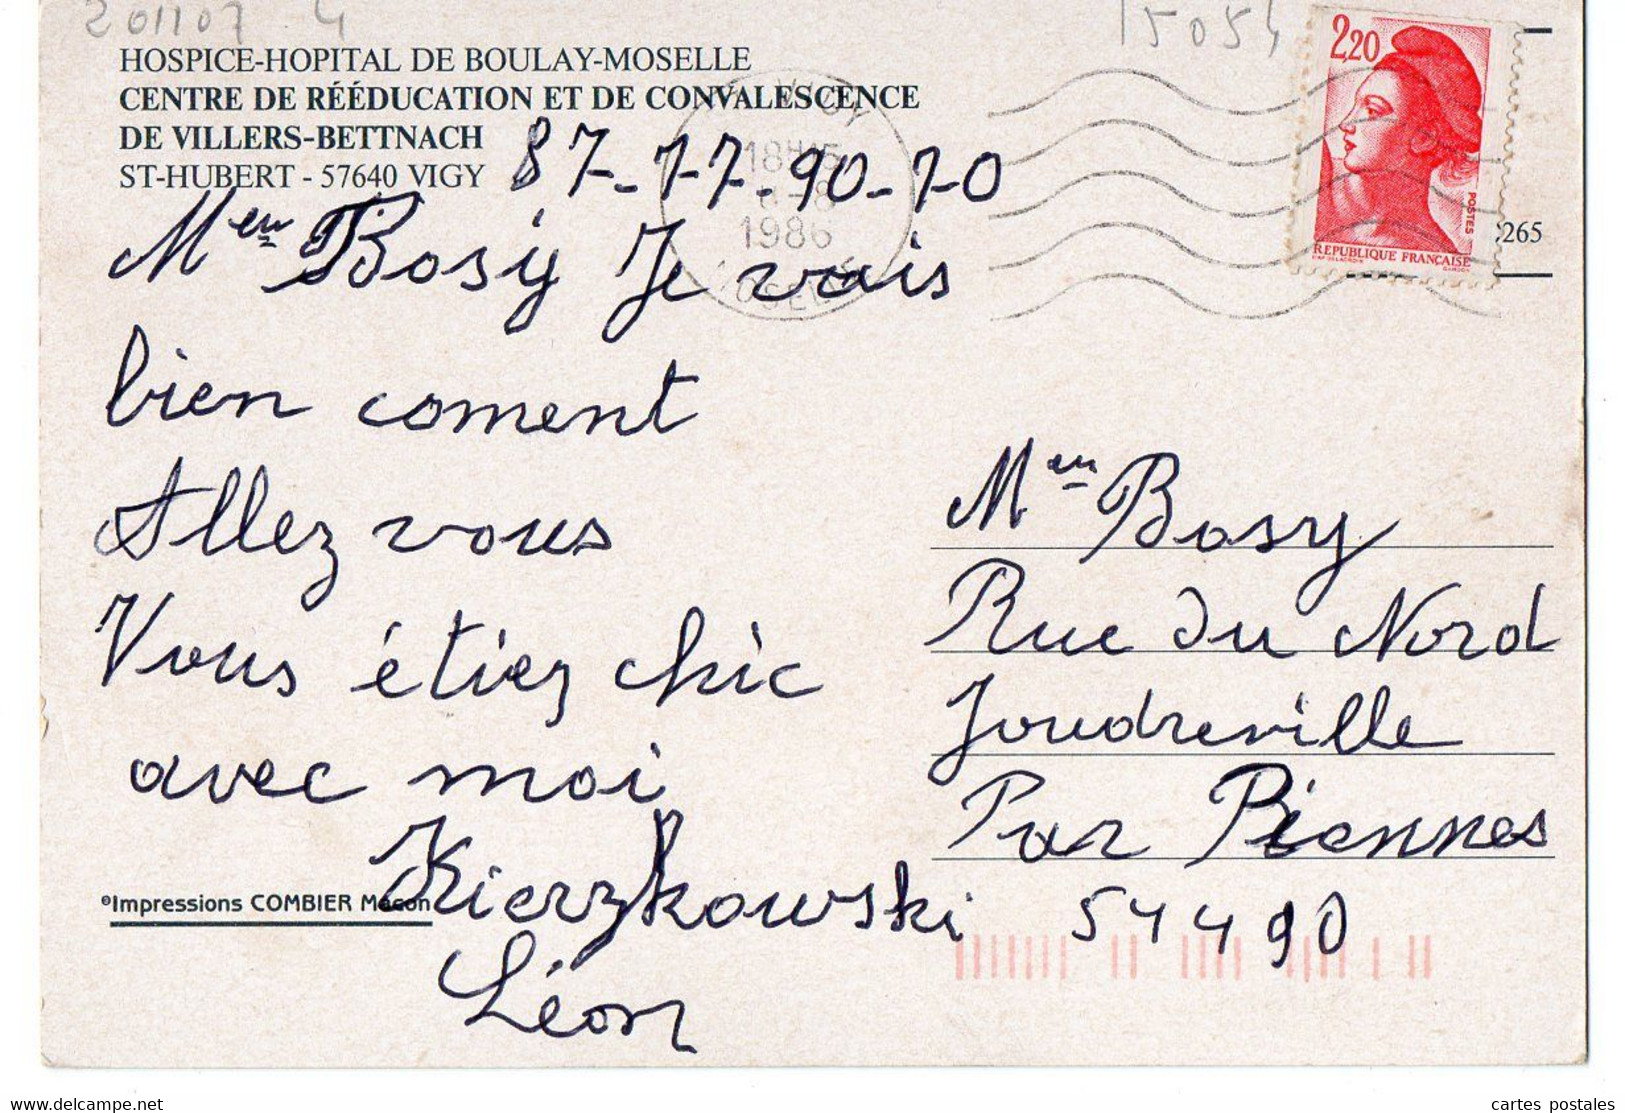 201107 4
15054
HOSPICE-HOPITAL DE BOULAY-MOSELLE
CENTRE DE RÉÉDUCATION ET DE CONVALESCENCE
DE VILLERS-BETTNACH
ST-HUBERT - 57640 VIGY
87-77-90-70
VIGY
18H15
8-8
1986
MOSELLE
2,20
POSTES
REPUBLIQUE FRANÇAISE
265
Meu Bosy Je vais
bien coment
Allez vous
Vous étiez chic
avec moi
Kierzkowski
Léon
©Impressions COMBIER Macon
Meu Bosy
Rue du Nord
Joudreville
Par Piennes
54490
www.delcampe.net
cartes postales